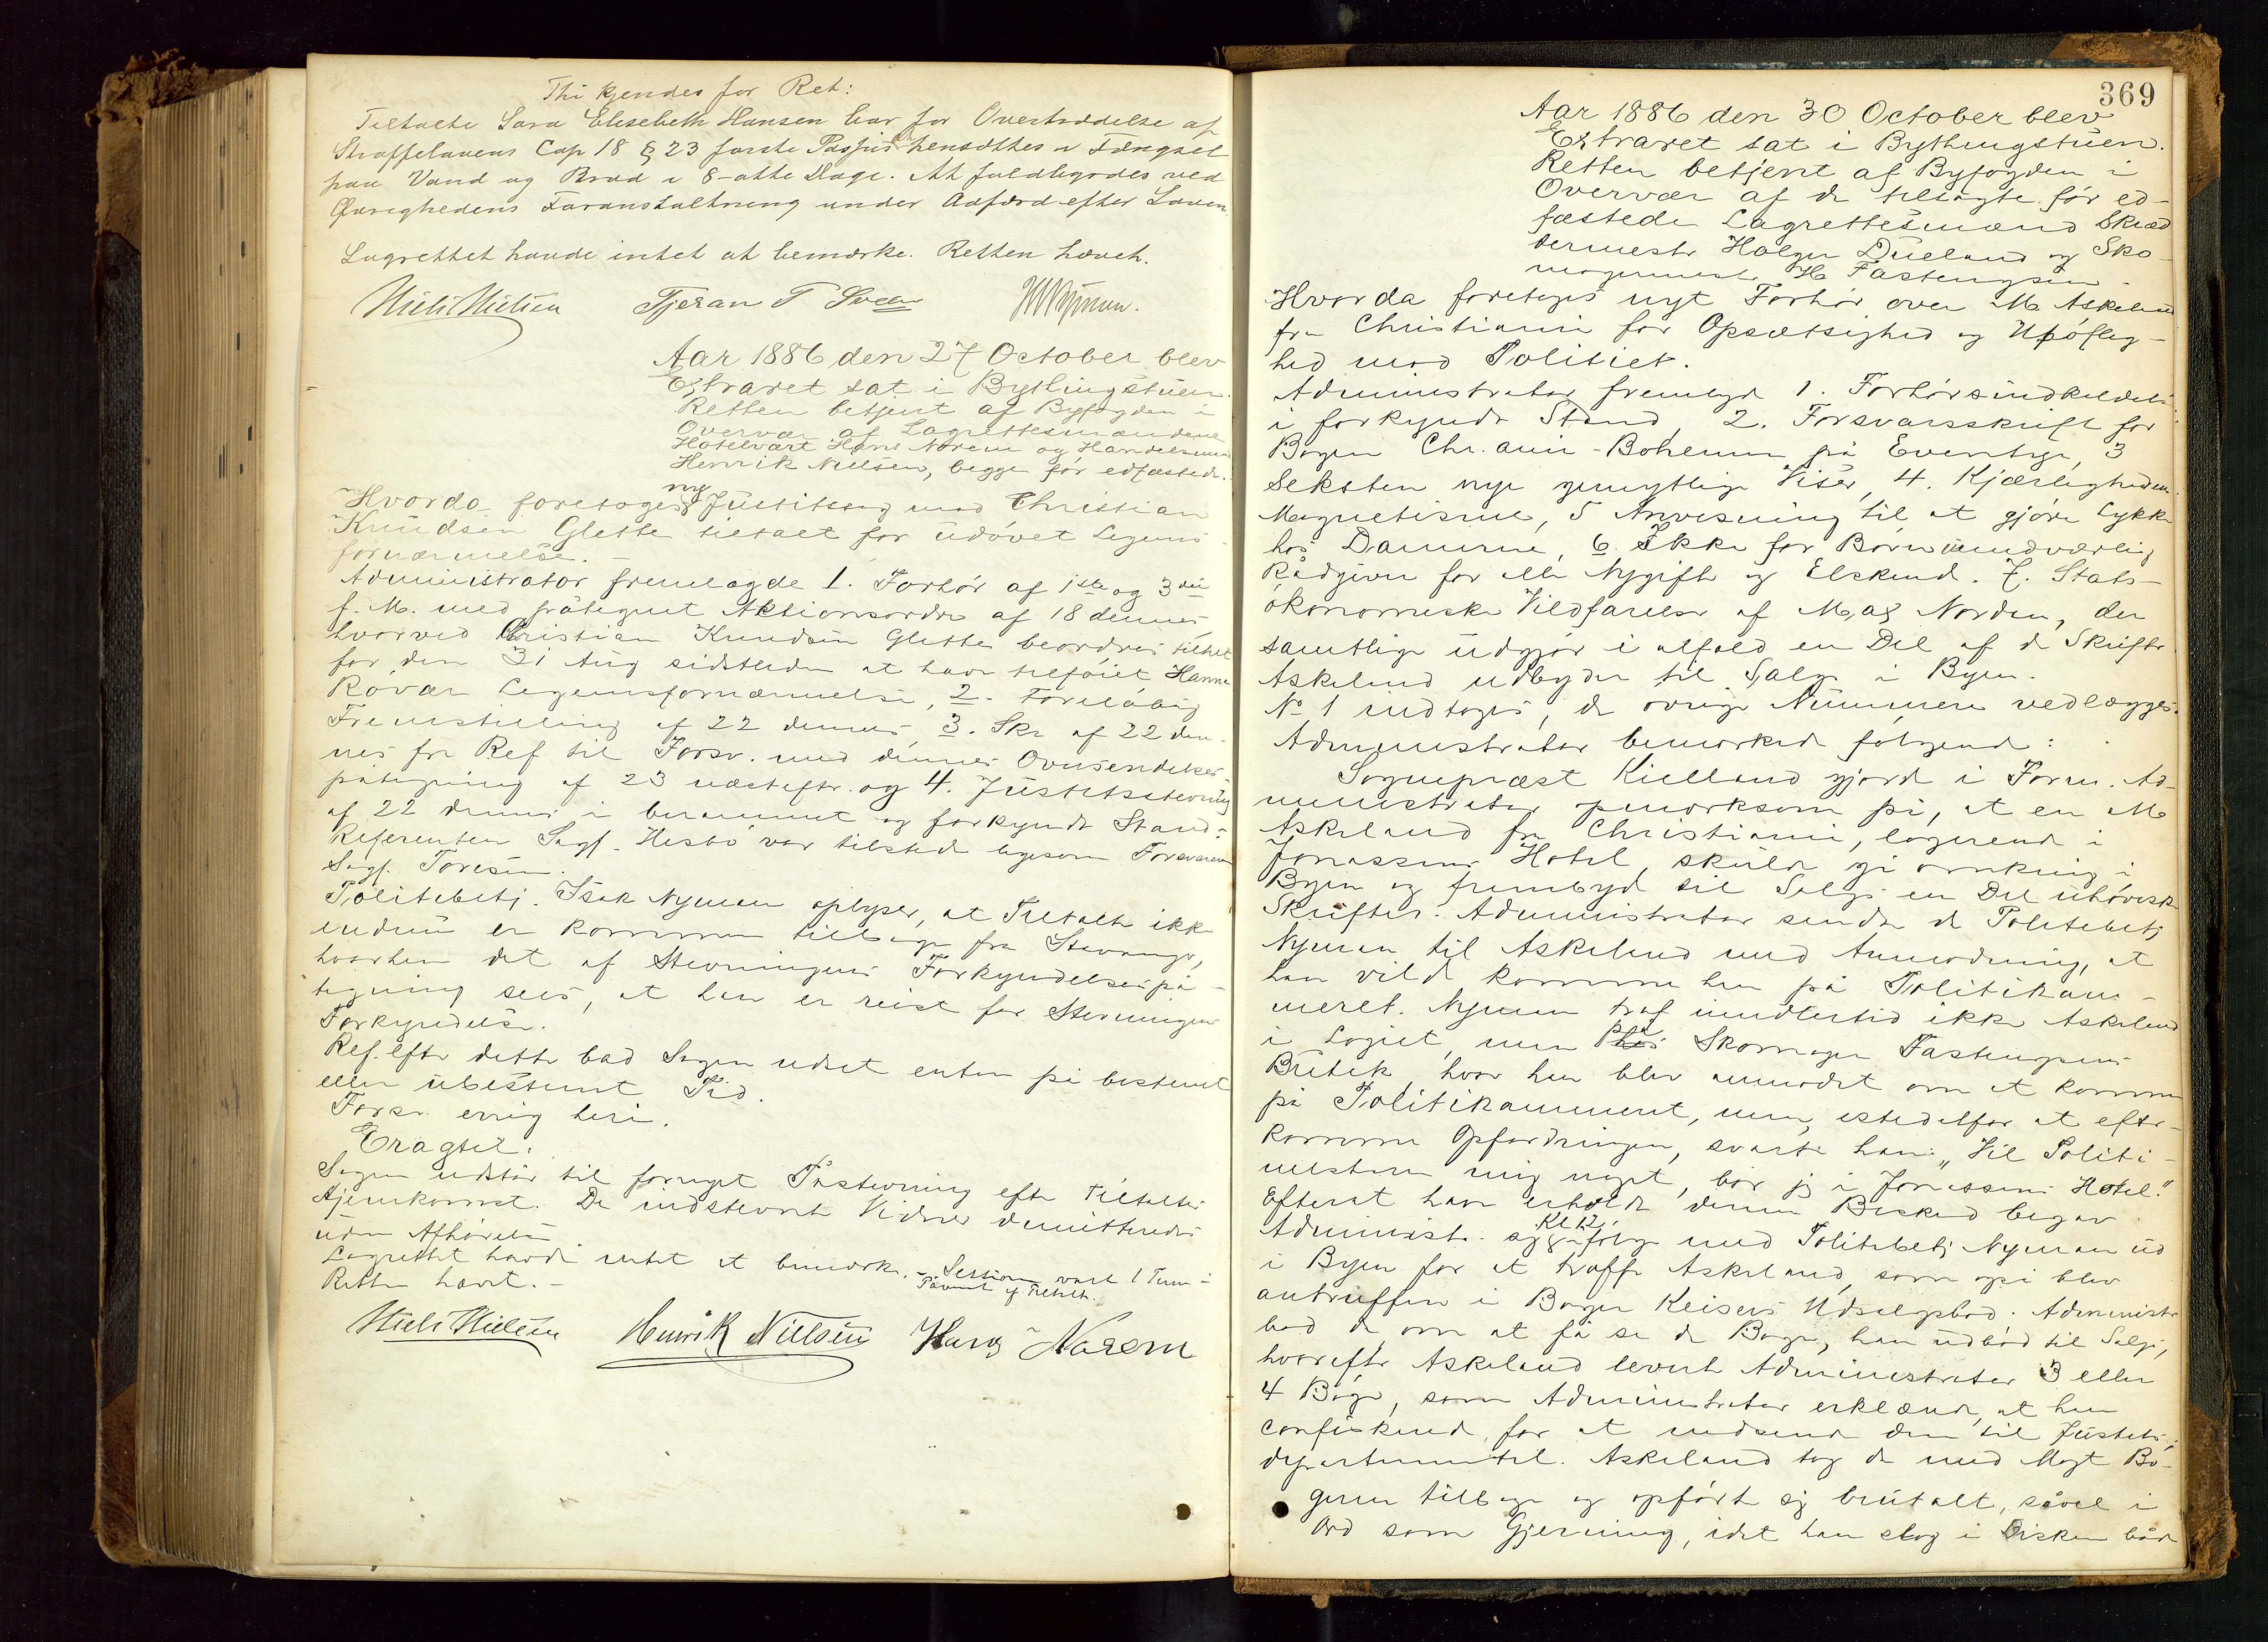 Thi kjendes for Ret:
Tiltalte Sara Elesebeth Hansen bør for Overtrædelse af
Straffelovens Cap 18 § 23 første Passus hensættes i Fængsel
paa Vand og Brød i 8-otte Dage. At fuldbyrdes ved
Øvrighedens Foranstaltning under Adfærd efter Loven
Lagrettet havde intet at bemærke. Retten hævet.
Niels Nielsen Tjeran T Sveen
Aar 1886 den 27 October blev
Extraret sat i Bythingstuen.
Retten betjent af Byfogden i
Overvær af Lagrettesmændene
Hotelvært Hans Norem og Handelsmand
Henrik Nielsen, begge før edfæstede.
Hvorda foretoges ny Justitssag mod Christian
Knudsen Glette tiltalt for udøvet Legems-
fornærmelse.
Administrator fremlagde 1. Forhør af 1ste og 3die
f. M. med påtegnet Aktionsordre af 18 dennes
hvorved Christian Knudsen Glette beordres tiltalt
for den 31 Aug sidstleden at have tilføiet Hanna
Røvær Legemsfornærmelse, 2. Foreløbig
Fremstilling af 22 dennes, 3. Skr af 22 den-
nes fra Ref til Forsv. med dennes Oversendelses-
påtegning af 23 næstefter og 4. Justitsstevning
af 22 dennes i berammet og forkyndt Stand.
Referenten Sagf. Hesbø var tilstede ligesom Forsvareren
Sagf. Toresen.
Politibetj. Isak Nyman oplyser, at Tiltalte ikke
endnu er kommen tilbage fra Stavanger,
hvorhen det af Stevningens Forkyndelsespå-
tegning sees, at han er reist før Stevningens
Forkyndelse.
Ref. efter dette bad Sagen udsat enten på bestemt
eller ubestemt Tid.
Forsv. enig heri.
Eragtet:
Sagen udstår til fornyet Påstevning efter Tiltaltes
Hjemkomst. De indstevnte Vidner demitteredes
uden Afhørelse
Lagrettet havde intet at bemærke. - Sessionen varte 1 Time
Retten hævet. -
Niels Nielsen Henrik Nielsen Hans Norem
369
Aar 1886 den 30 October blev
Extraret sat i Bythingstuen.
Retten betjent af Byfogden i
Overvær af de tilsagte før ed-
fæstede Lagrettesmænd Skræd
dermester Holger Dueland og Sko-
magermester H Fastengsen
Hvorda foretoges nyt Forhør over M Askeland
fra Christiania for Opsætsighed og Uhøflig-
hed mod Politiet.
Administrator fremlagde 1. Forhørsindkaldelse
i forkyndt Stand, 2. Forsvarsskrift for
Bogen Chr.ania-Bohemen på Eventyr, 3
Seksten nye gemytlige Viser, 4. Kjærlighedens
Magnetisme, 5 Anvisning til at gjøre Lykke
hos Damerne, 6. Ikke for Børn uundværlig
Rådgiver for alle Nygifte og Elskende. 7. Stats-
økonomiske Vildfarelser af Max Norden, der
samtlige udgjør i alfald en Del af de Skrifter
Askeland udbyder til Salgs i Byen.
No 1 indtoges, de øvrige Nummere vedlægges.
Administrator bemærkede følgende:
Sognepræst Kielland gjorde i Form. Ad-
ministrator opmærksom på, at en M
Askeland fra Christiania, logerende i
Jonassens Hotel skulde gå omkring i
Byen og frembyde til Salgs en Del uhøviske
Skrifter. Administrator sendte da Politibetj
Nyman til Askeland med Anmodning, at
han vilde komme hen på Politikam-
meret. Nyman traf imidlertid ikke Askeland
i Logiet, men på Skomager Fastengsens
Butik, hvor han blev anmodet om at komme
på Politikammeret, men istedetfor at efter-
komme Opfordringen, svarte han: "Vil Politi-
mesteren mig noget, bor jeg i Jonassens Hotel."
Efterat have erholdt denne Besked begav
Administr. sig i følge med Politibetj Nyman ud
i Byen for at træffe Askeland, som også blev
antruffen i Bager Keisers Udsalgsbod. Administr
bad da om at få se de Bøger, han udbød til Salgs,
hvorefter Askeland leverte Administrator 3 eller
4 Bøger, som Administrator erklærede, at han
confiskerede for at indsende dem til Justits-
departementet. Askeland tog da med Magt Bø-
gerne tilbage og opførte sig brutalt, såvel i
Ord som Gjerning, idet han slog i Disken både